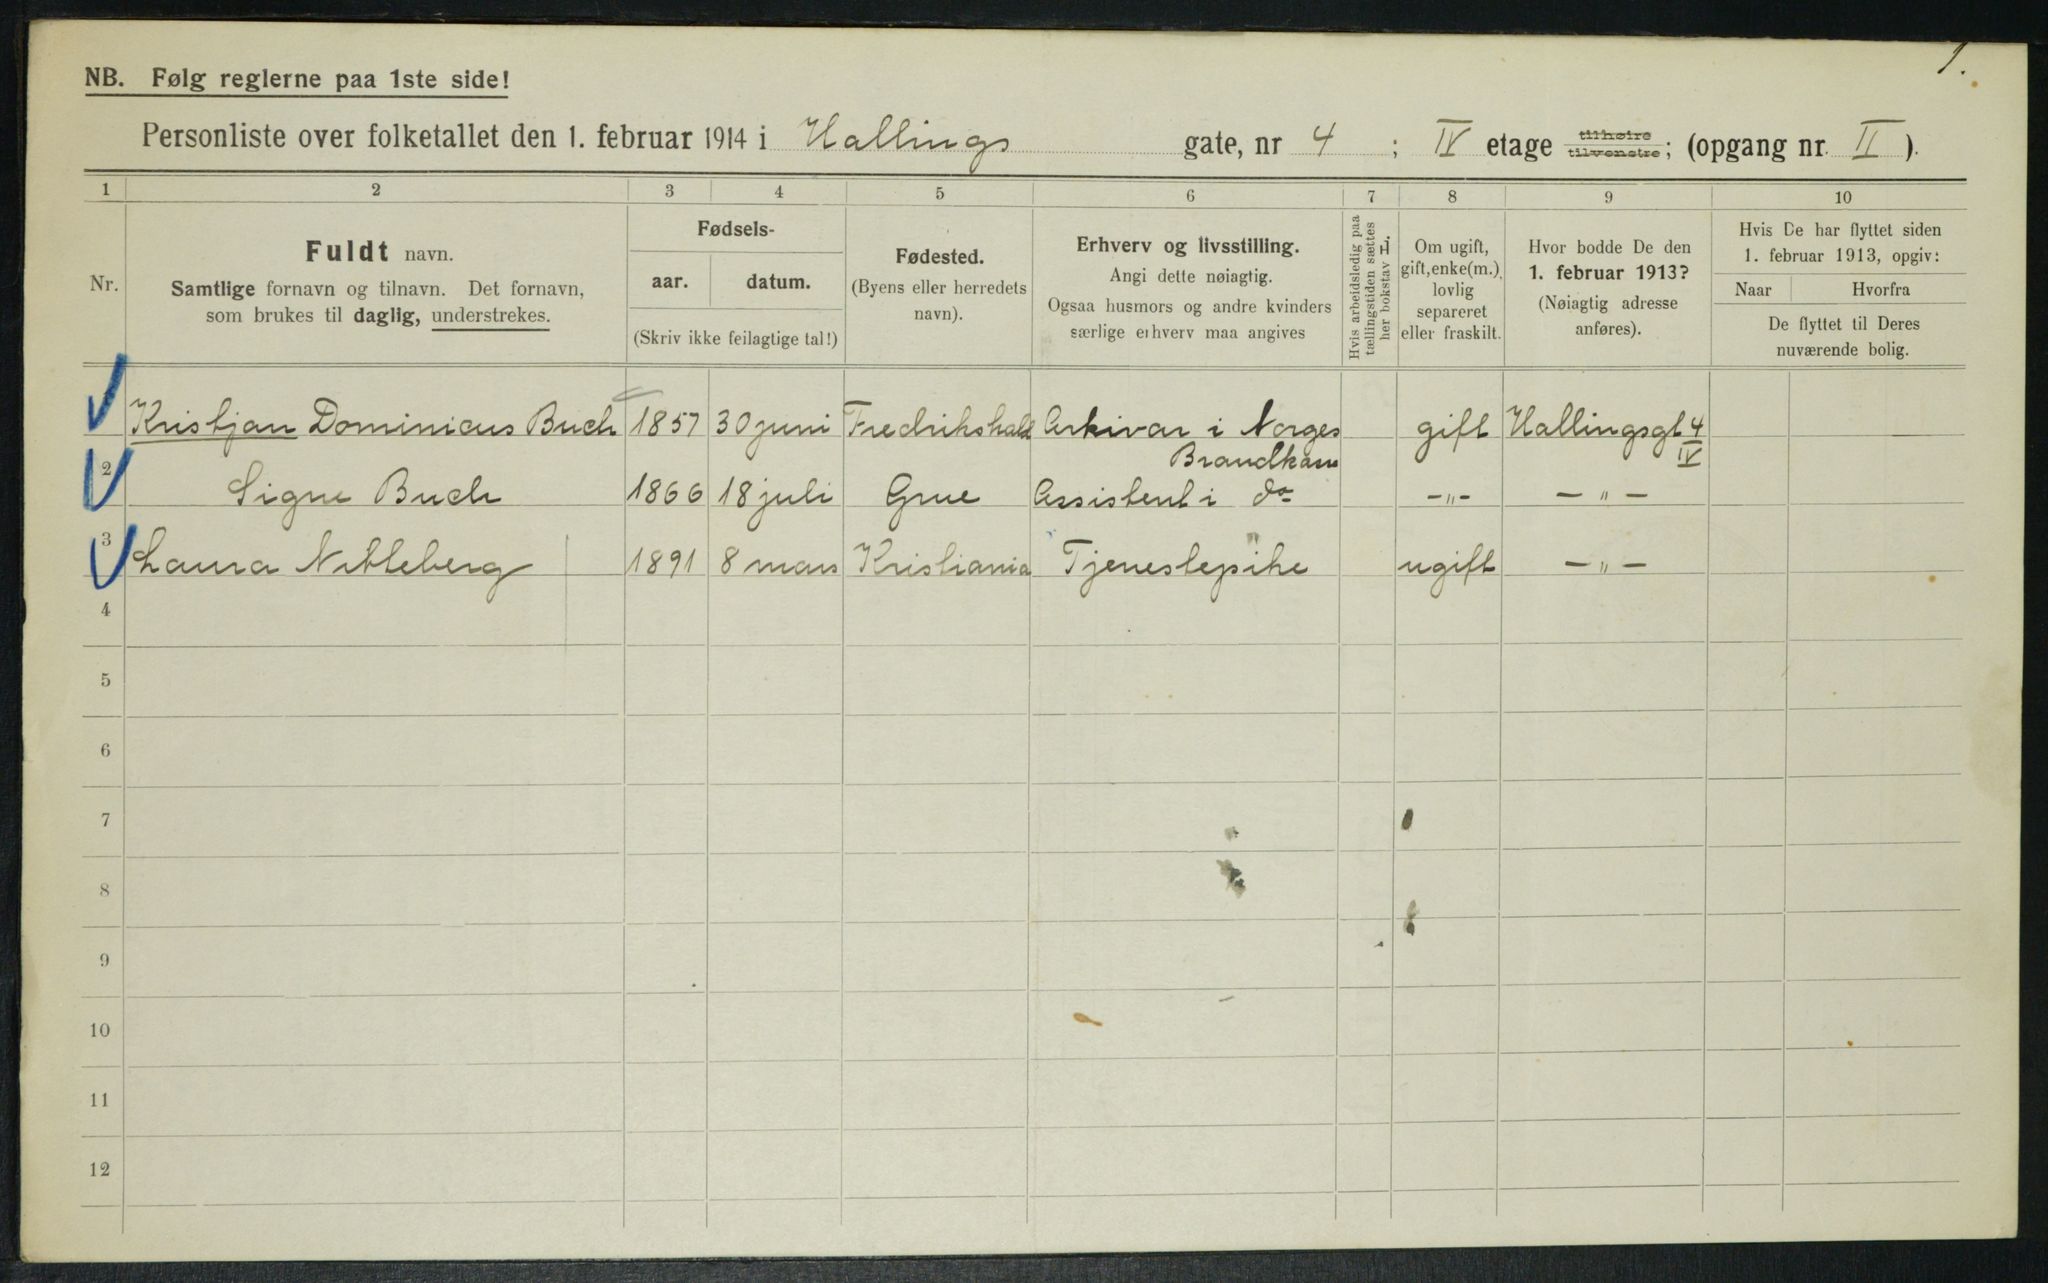 1.
NB. Følg reglerne paa 1ste side!
Personliste over folketallet den 1. februar 1914 i Hallings gate, nr 4 ; IV etage tilhøire tilvenstre; (opgang nr. II ).
1 2 3 4 5 6 7 8 9 10
Nr.
Fuldt navn.
Samtlige fornavn og tilnavn. Det fornavn,
som brukes til daglig, understrekes.
Fødsels-
aar. datum.
(Skriv ikke feilagtige tal!)
Fødested.
(Byens eller herredets
navn).
Erhverv og livsstilling.
Angi dette nøiagtig.
Ogsaa husmors og andre kvinders
særlige erhverv maa angives
Hvis arbeidsledig paa
tællingstiden sættes
her bokstav L.
Om ugift,
gift, enke(m.),
lovlig
separeret
eller fraskilt.
Hvor bodde De den
1. februar 1913?
(Nøiagtig adresse
anføres).
Hvis De har flyttet siden
1. februar 1913, opgiv:
Naar Hvorfra
De flyttet til Deres
nuværende bolig.
Kristjan Dominicus Buch 1857 30 juni Fredrikshald Arkivar i Norges gift Hallingsgt 4
Brandkasse IV
2 Signe Buch 1866 18 juli Grue Assistent i do -"- -"-
3 Laura Nitteberg 1891 8 mars Kristiania Tjenestepike ugift -"-
4
5
6
7
8
9
10
11
12